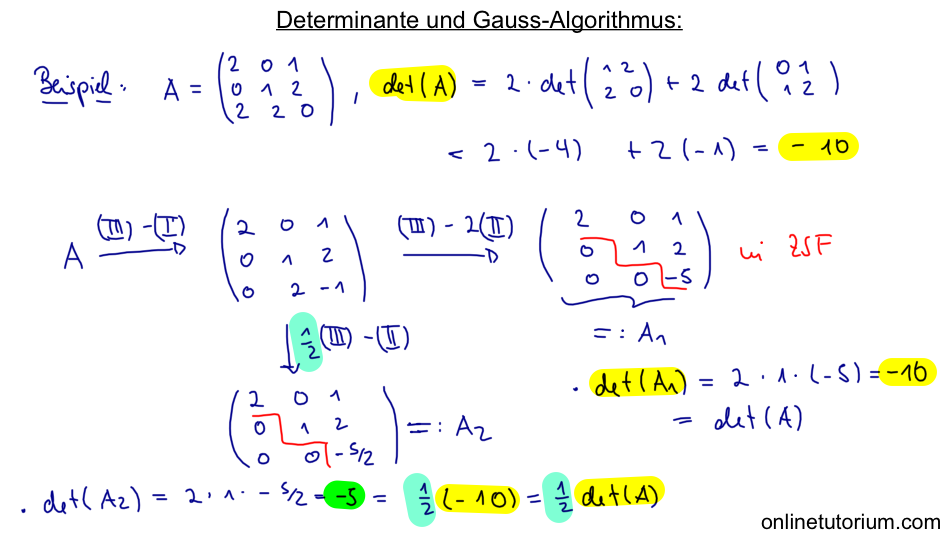 Determinante und Gauss-Algorithmus:
Beispiel: A = (2 0 1
0 1 2
2 2 0), det(A) = 2 · det(1 2
2 0) + 2 det(0 1
1 2)
= 2 · (-4) + 2 (-1) = - 10
A (III) - (I) → (2 0 1
0 1 2
0 2 -1) (III) - 2(II) → (2 0 1
0 1 2
0 0 -5) in ZSF
=: A1
↓ 1/2 (III) - (II)
· det(A1) = 2 · 1 · (-5) = -10
= det(A)
(2 0 1
0 1 2
0 0 -5/2) =: A2
· det(A2) = 2 · 1 · - 5/2 = -5 = 1/2 (-10) = 1/2 det(A)
onlinetutorium.com